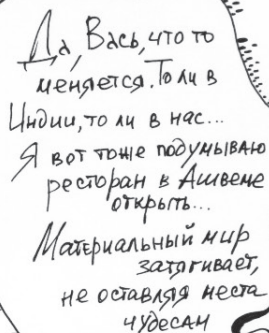 Да, Вась, что то
меняется. То ли в
Индии, то ли в нас...
Я вот тоже подумываю
ресторан в Ашвеме
открыть...
Материальный мир
затягивает,
не оставляя места
чудесам